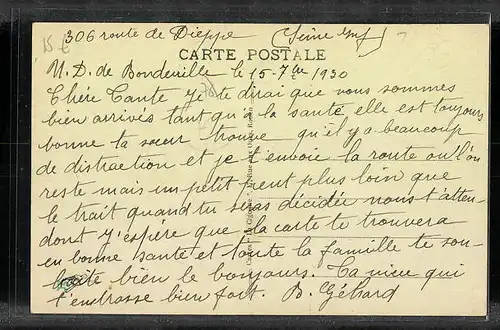 306 route de Dieppe (Seine Inf)
CARTE POSTALE
N. D. de Bondeville le 15-7bre 1930
Chére Tante je te dirai que nous sommes
bien arrivés tant qu'a la santé elle est toujours
bonne ta sœur trouve qu'il y a beaucoup
de distraction et je t'envoie la route ou l'on
reste mais un petit peut plus loin que
le trait quand tu seras décidée nous t'atten-
dont j'éspère que la carte te trouvera
en bonne santé et toute la famille te sou-
haite bien le bonjours. Ta niece qui
t'embrasse bien fort. B. Géhard